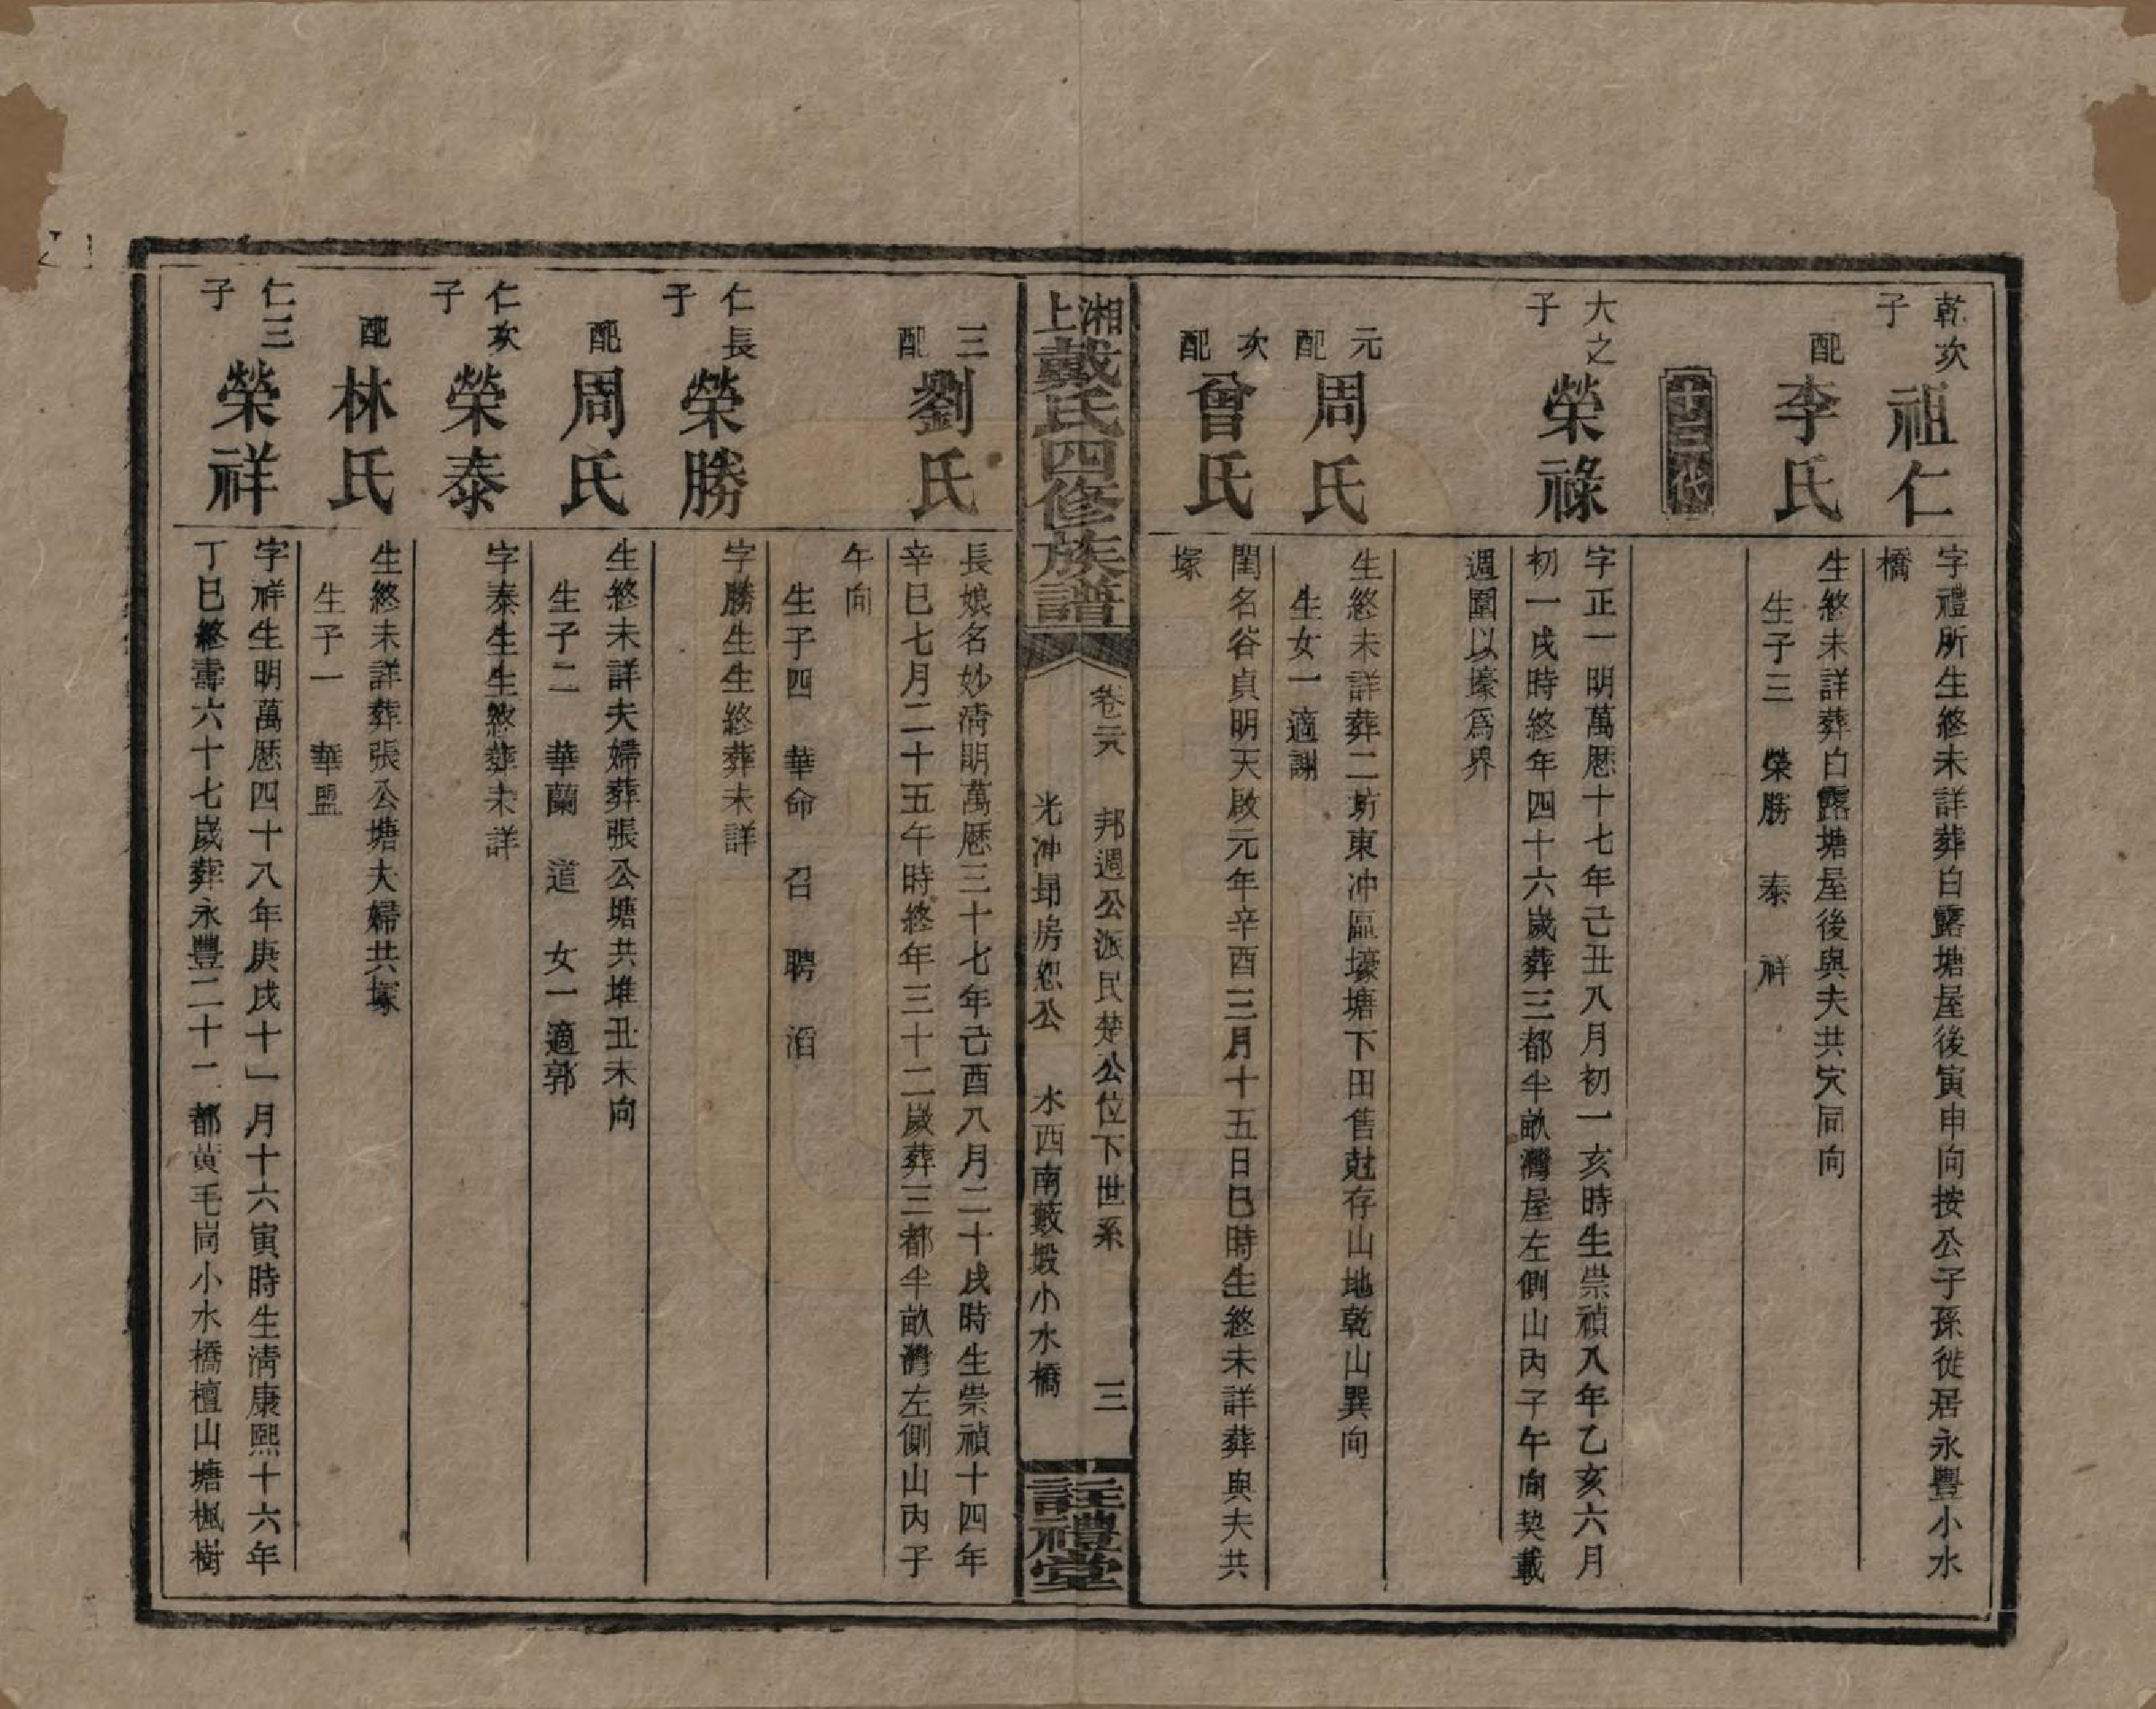 乾次子
祖仁
字禮所生終未詳葬白露塘屋後寅申向按公子孫徙居永豐小水
橋
配
李氏
生終未詳葬白露塘屋後與夫共穴同向
生子三 榮勝 泰 祥
大之子
榮祿
字正一明萬歷十七年己丑八月初一亥時生崇禎八年乙亥六月
初一戌時終年四十六歲葬三都半畝灣屋左側山內子午向契載
週圍以壕爲界
元配
周氏
生終未詳葬二坊東冲區壕塘下田售尅存山地乾山巽向
生女一適謝
次配
曾氏
閨名谷貞明天啟元年辛酉三月十五日巳時生終未詳葬與夫共
塚
上湘戴氏四修族譜
卷元 邦週公派民楚公位下世系 三
光冲昻房恕公 水西南藪塅小水橋
註禮堂
三配
劉氏
長娘名妙清明萬歷三十七年己酉八月二十戌時生崇禎十四年
辛巳七月二十五午時終年三十二歲葬三都半畝灣左側山內子
午向
生子四 華命 召 聘 滔
仁長子
榮勝
字勝生生終葬未詳
配
周氏
生終未詳夫婦葬張公塘共堆丑未向
生子二 華蘭 道 女一適郭
仁次子
榮泰
字泰生生終葬未詳
配
林氏
生終未詳葬張公塘夫婦共塚
生子一 華盟
仁三子
榮祥
字祥生明萬歷四十八年庚戌十一月十六寅時生清康熙十六年
丁巳終壽六十七歲葬永豐二十一都黃毛崗小水橋檀山塘楓樹